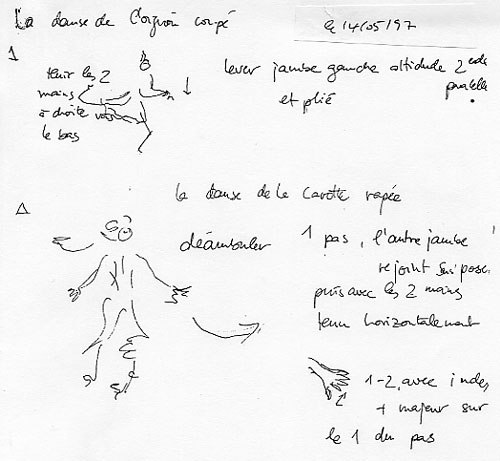 La danse de l'oignon coupé
le 14/05/97
1
tenir les 2
mains
à droite vers
le bas
lever jambe gauche attitude 2
et plié
la danse de la carotte rapée
déambuler
1 pas, l'autre jambe
rejoint
puis avec les 2 mains
tenu horizontalement
1-2, avec index
+ majeur sur
le 1 du pas